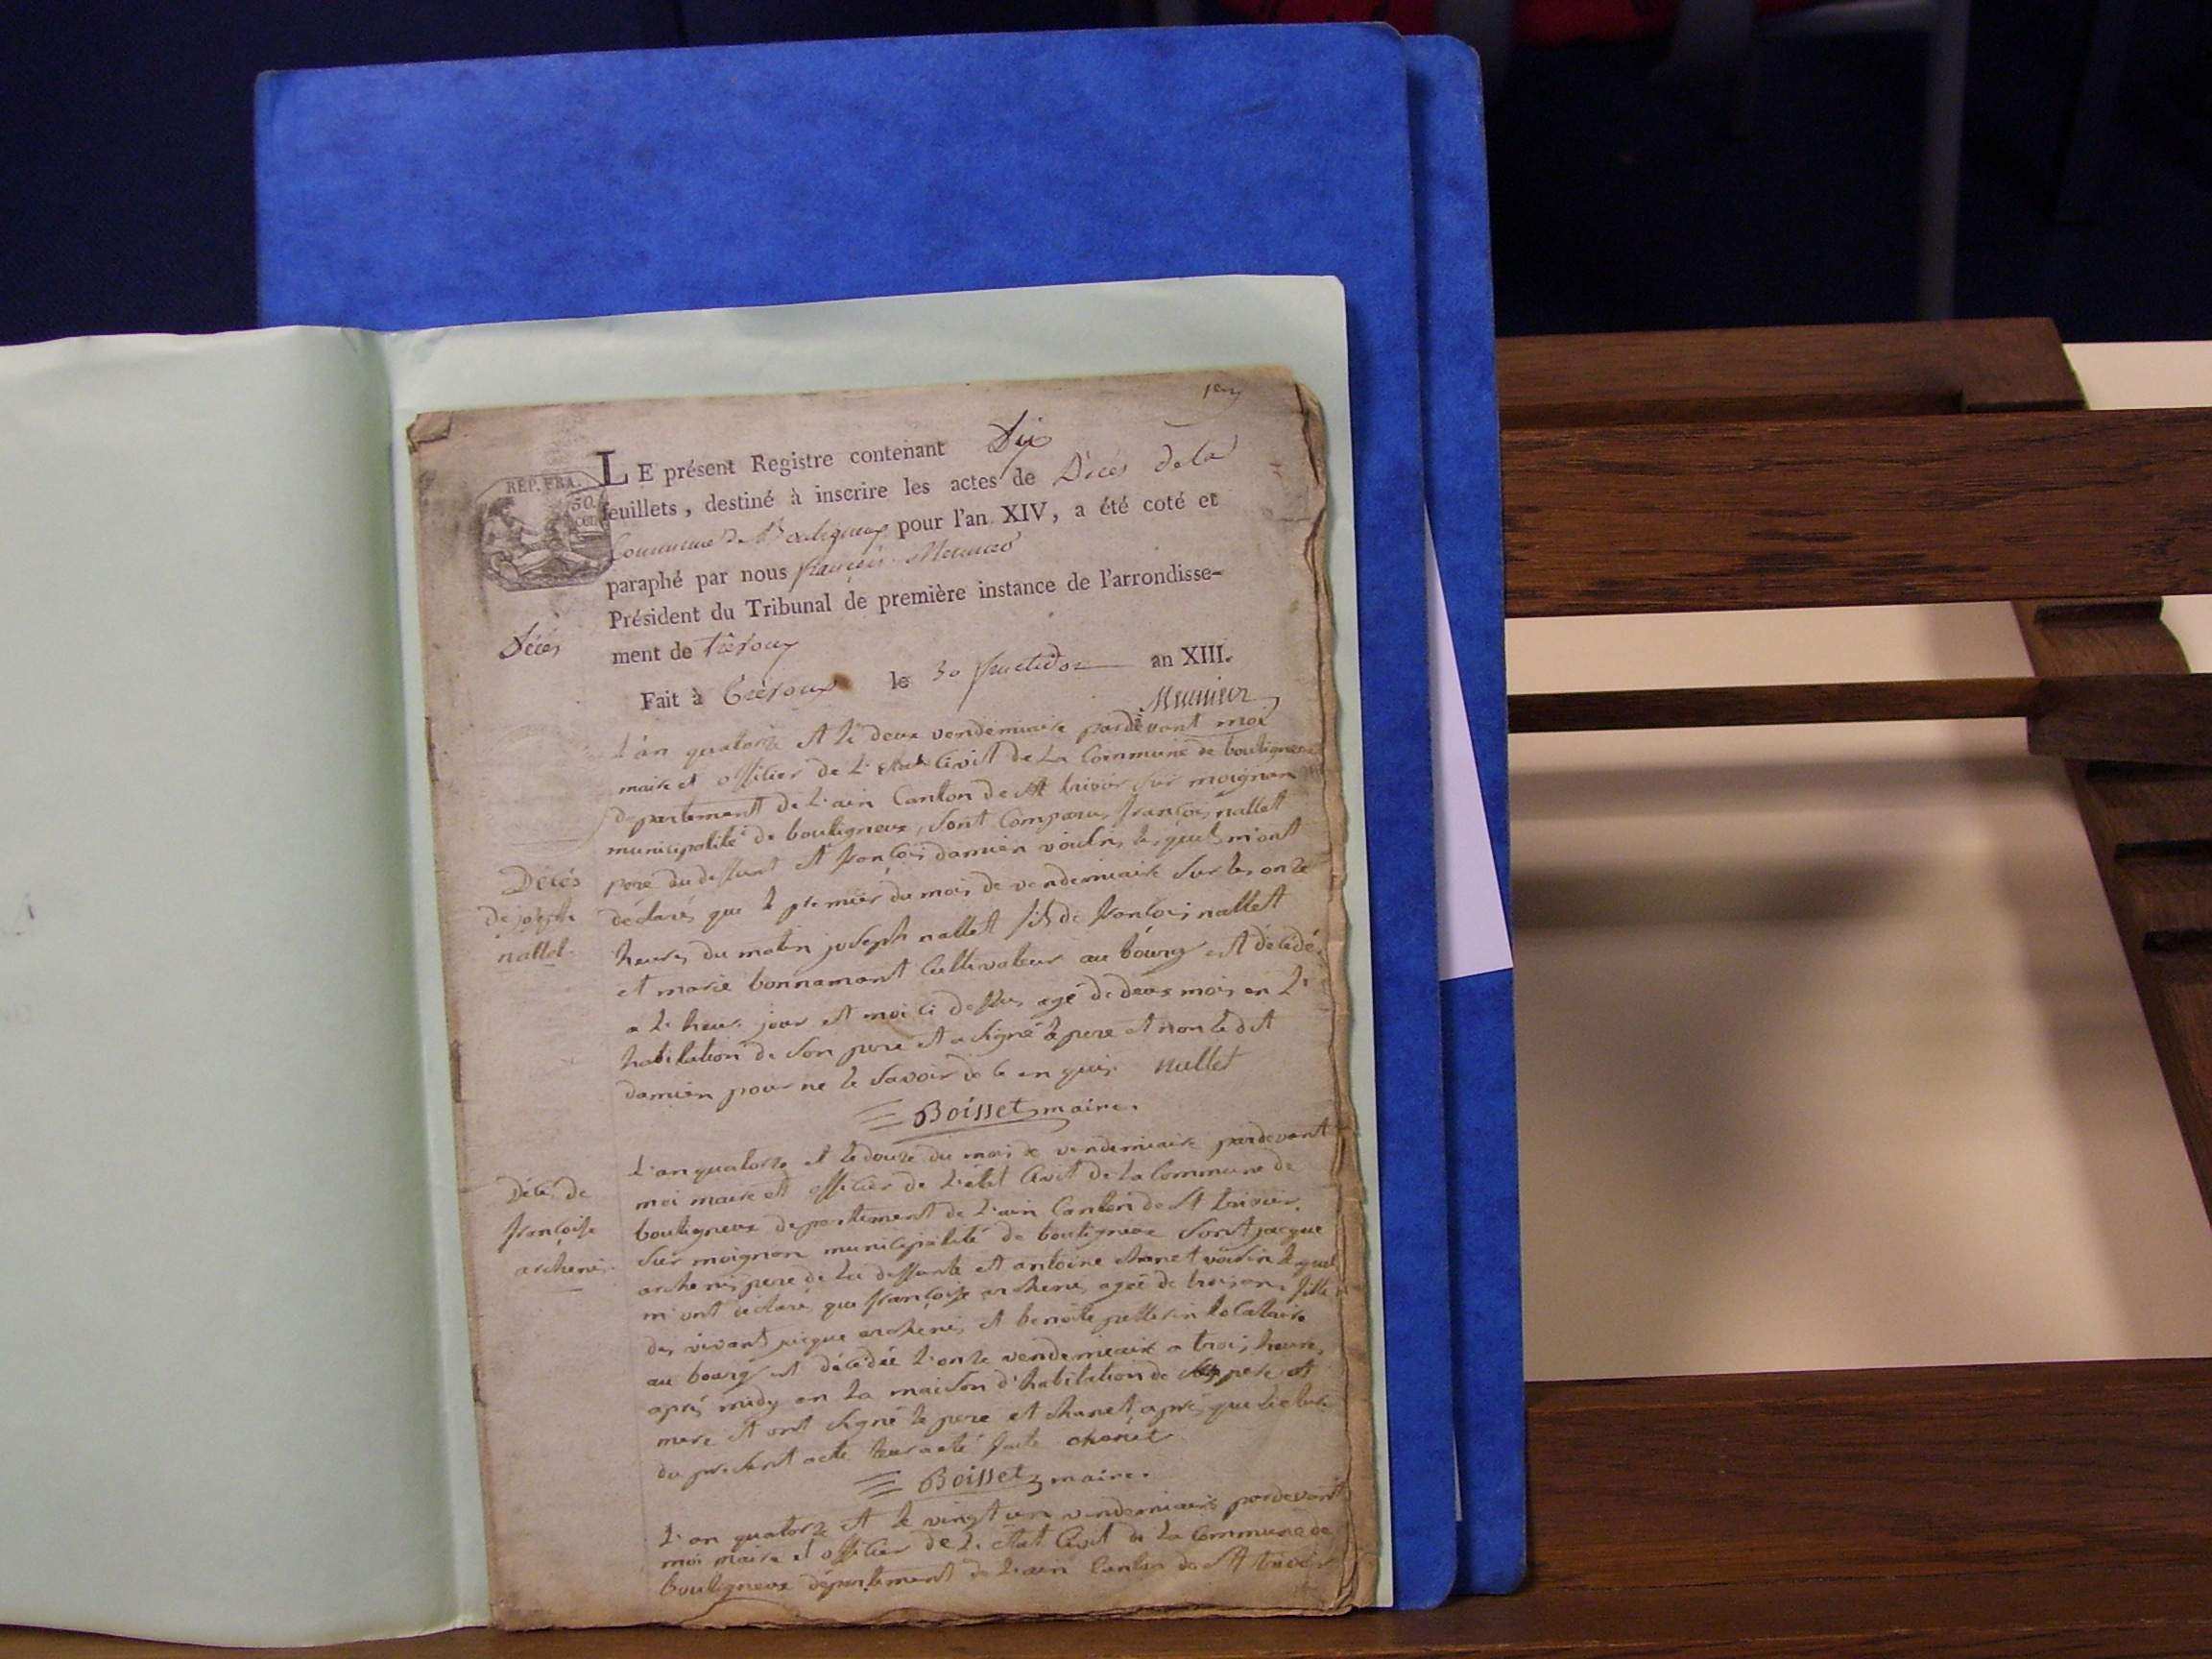 1er
REP. FRA.
50.
CEN.
LE présent Registre contenant Dix
feuillets, destiné à inscrire les actes de Décès de la
Commune de Bouligneux pour l'an XIV, a été coté et
paraphé par nous françois Meunier
Président du Tribunal de première instance de l'arrondisse-
ment de Trévoux
Décès
Fait à Trévoux le 30 fructidor an XIII.
Meunier
L'an quatorze et le deux vendemiaire pardevant moi
maire et officier de L'etat Civil de La Commune de bouligneux
departement de L'ain Canton de St trivier sur moignan
municipalité de bouligneux, sont Comparus françois nallet
pere du deffunt et françois damien voisin, lesquels m'ont
déclarés que le premier du mois de vendemiaire sur les onze
heures du matin joseph nallet fils de francois nallet
et marie bonnamont Cultivateur au bourg est décédé
a L'heure jour et moi ci dessus agé de deux mois en L'
habitation de son pere et a signé le pere et non le dit
damien pour ne le savoir de ce enquis nallet
Boisset maire.
Décés
de joseph
nallet
L'an quatorze et le douze du mois de vendemiaire pardevant
moi maire et officier de L'état Civil de La Commune de
bouligneux departement de L'ain Canton de St trivier
sur moignan municipalité de bouligneux sont jacque
archeni pere de La deffunte et antoine chanet voisin lesquel
m'ont déclaré que françoise archeni agée de trois ans fille
des vivant jacque archeni et benoite locataire
au bourg est décédée L'onze vendemiaire a trois heure
après midy en La maison d'habitation de pere et
mere et ont signé le pere et chanet après que lecture
du present acte leur a été faite chanet
Boisset maire.
Décé de
françoise
archeni
L'an quatorze et le vingt un vendemiaire pardevant
moi maire et officier de L'etat Civil de La Commune de
bouligneux département de L'ain Canton de St trivier